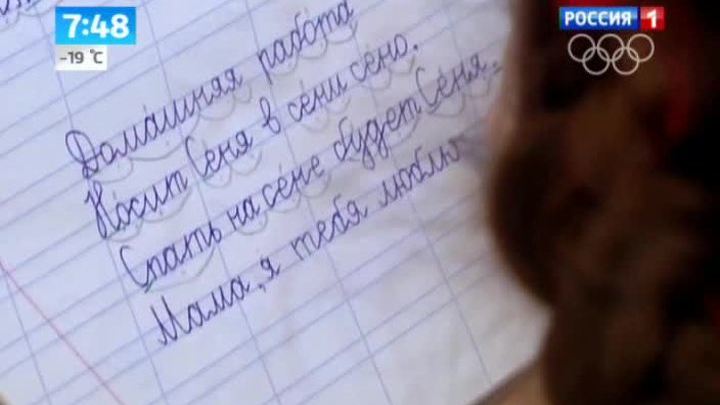 7:48
-19 °C
РОССИЯ 1
Домашняя работа
Носит Сеня в сени сено.
Спать на сене будет Сеня.
Мама, я тебя люблю